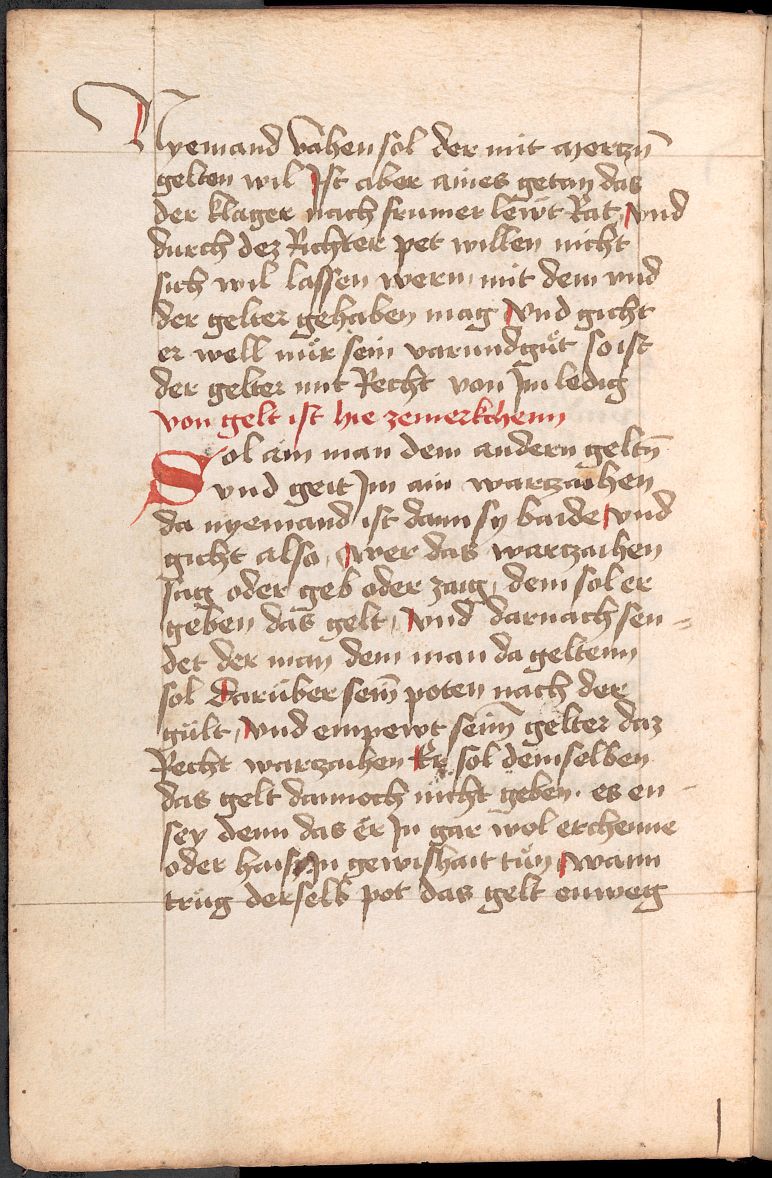 Nyemand vahen sol der mit mertzn̄
gelten wil Ist aber aines getan das
der klager nach frumer lewt Rat, vnd
durch dez Richter pet willen nicht
sich wil lassen wern, mit dem vnd
der gelter gehaben mag vnd gicht
er well nuͤr sein varund guͤt so ist
der gelter mit Recht von Im ledig
von gelt ist hie zemerkchenn
Sol ain man dem andern geltn̄
vnd geit Im ain wartzaihen
da nyemand ist dann sy baide vnd
gicht also, wer das wartzaihen
sag oder geb oder zaig, dem sol er
geben das gelt, vnd darnach sen=
det der man dem man da geltenn
sol Daruber sein̄ poten nach der
gult, vnd empewt seim̄ gelter daz
Recht wartzaihen Er sol demselben
das gelt dannoch nicht geben. es en-
sey denn das er In gar wol erchenne
oder hais In gewishait tuͤn, wann
truͤg derselb pot das gelt enweg